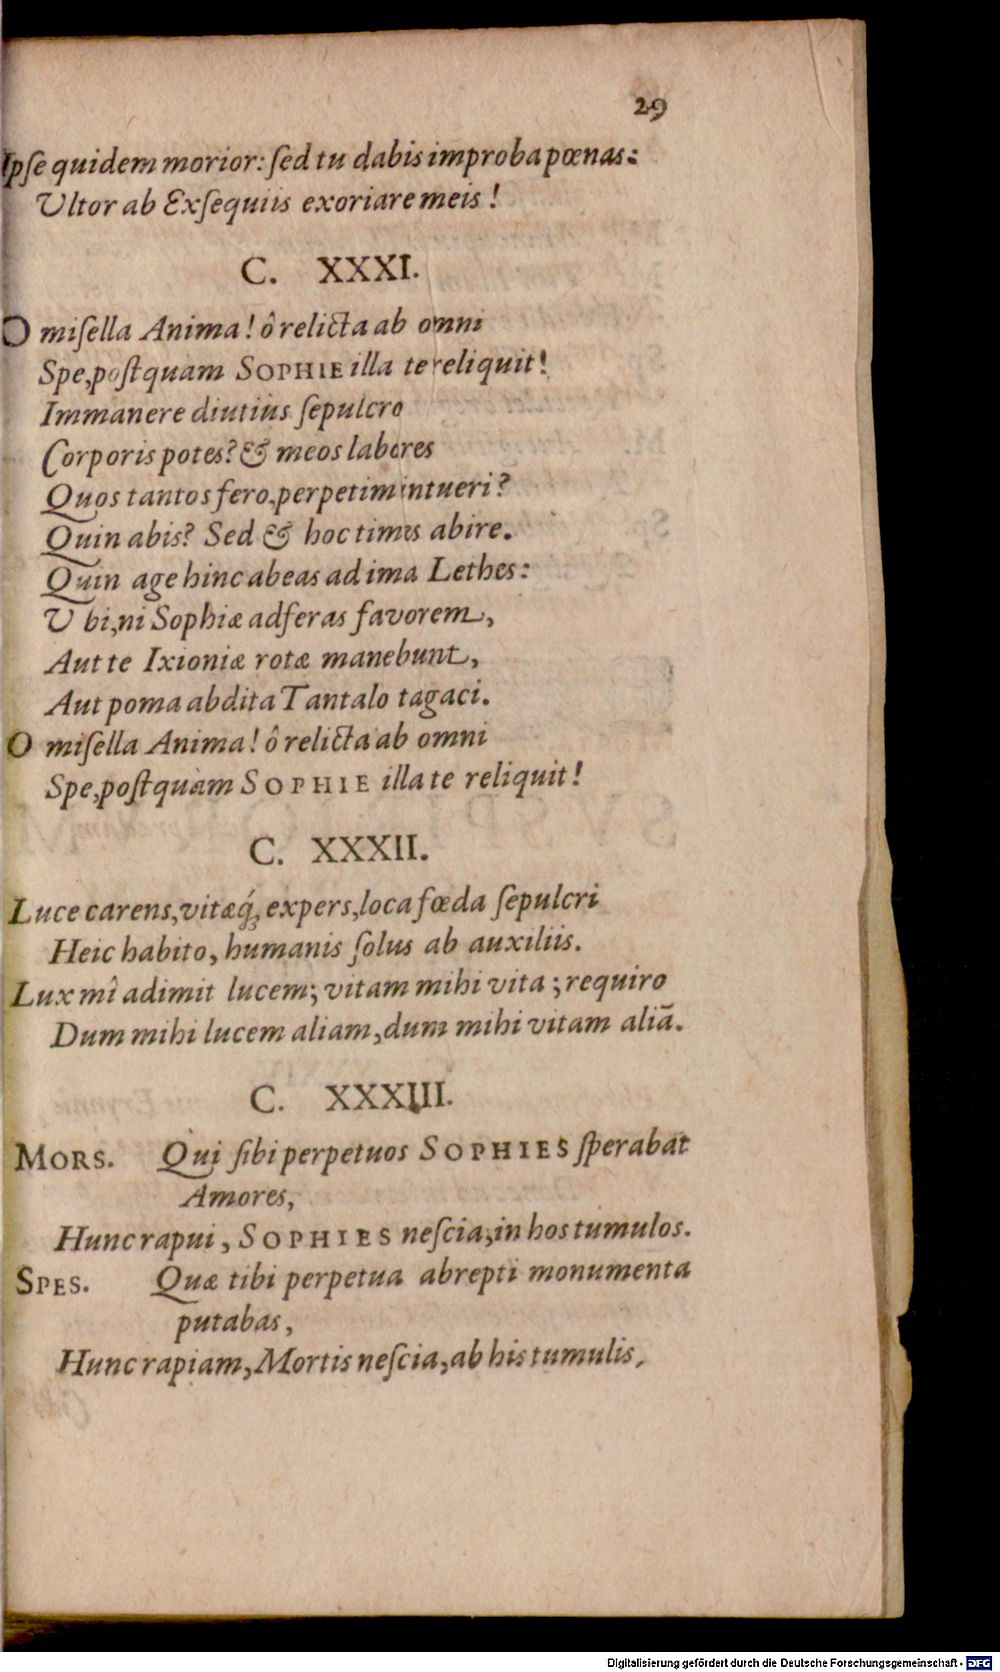 29
Ipſe quidem morior: ſed tu dabis improba pœnas:
Ultor ab Exſequiis exoriare meis!
C. XXXI.
O miſella Anima! ô relicta ab omni
Spe, poſtquam SOPHIE illa te reliquit!
Immanere diutius ſepulcro
Corporis potes? & meos labores
Quos tantos fero, perpetim intueri?
Quin abis? Sed & hoc times abire.
Quin age hinc abeas ad ima Lethes:
Ubi, ni Sophiæ adferas favorem,
Aut te Ixioniæ rotæ manebunt,
Aut poma abdita Tantalo tagaci.
O miſella Anima! ô relicta ab omni
Spe, poſtquam SOPHIE illa te reliquit!
C. XXXII.
Luce carens, vitæq́;, expers, loca fœda ſepulcri
Heic habito, humanis ſolus ab auxiliis.
Lux mî adimit lucem; vitam mihi vita; requiro
Dum mihi lucem aliam, dum mihi vitam aliā.
C. XXXIII.
MORS. Qui ſibi perpetuos SOPHIES ſperabat
Amores,
Hunc rapui, SOPHIES neſcia, in hos tumulos.
SPES. Quæ tibi perpetua abrepti monumenta
putabas,
Hunc rapiam, Mortis neſcia, ab his tumulis.
Digitalisierung gefördert durch die Deutsche Forschungsgemeinschaft - DFG